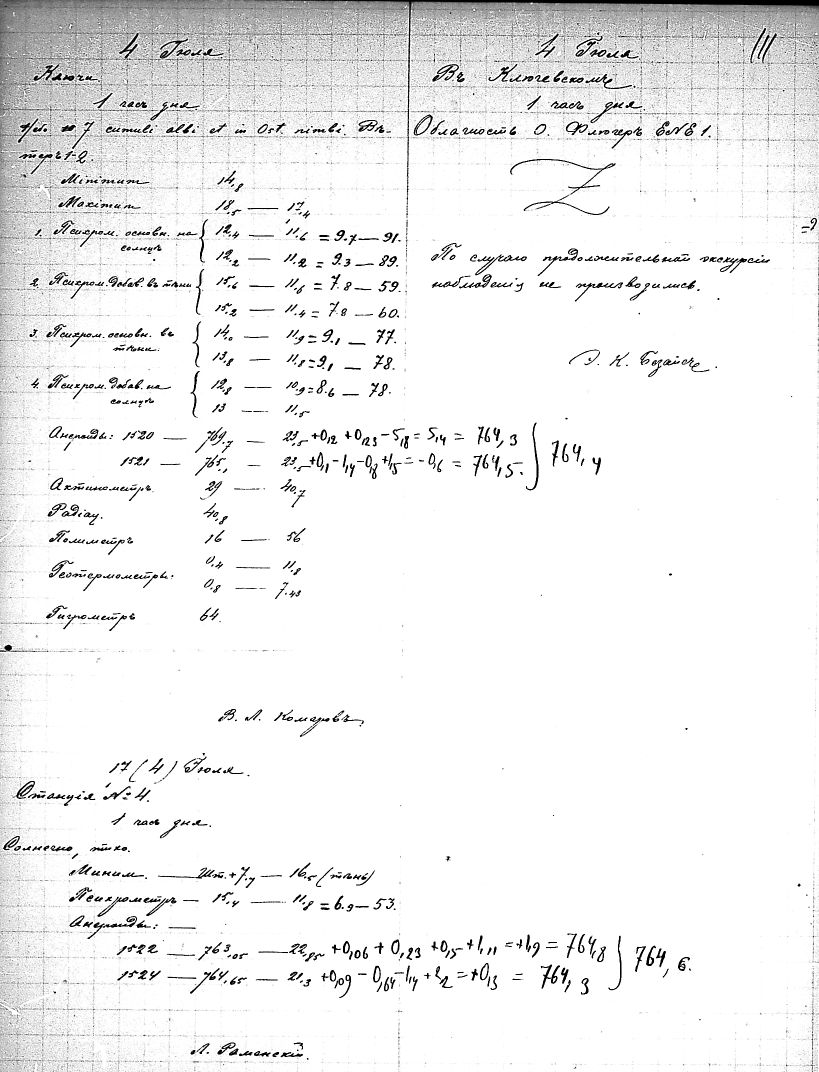 111
4 Іюля
Ключи
1 часъ дня
7 cumuli albi et in Ost. nimbi. Вѣ-
теръ 1-2.
Minimum 14,8
Maximum 18,5 — 17,4
1. Психром. основн. на солнцѣ { 12,4 — 11,6 = 9.7 — 91.
12,2 — 11,2 = 9.3 — 89.
2. Психром. добав. въ тѣни { 15,6 — 11,6 = 7.8 — 59.
15,2 — 11,4 = 7.8 — 60.
3. Психром. основн. въ тѣни. { 14,0 — 11,9 = 9,1 — 77.
13,8 — 11,8 = 9,1 — 78.
4. Психром. добав. на солнцѣ { 12,8 — 10,9 = 8.6 — 78.
13 — 11,5
Анероиды: 1520 — 769,7 — 23,5 +0,12 +0,23 -5,8 = 5,4 = 764,3 } 764,4
1521 — 765,1 — 23,5 +0,1 -1,4 -0,8 +1,5 = -0,6 = 764,5.
Актинометръ 29 — 40,7
Радіац. 40,8
Полиметръ 16 — 56
Геотермометры: 0,4 — 11,8
0,8 — 7,43
Гигрометръ 64.
В. Л. Комаровъ.
4 Іюля
Въ Ключевскомъ.
1 часъ дня.
Облачность 0. Флюгеръ ENE 1.
Z
По случаю продолжительной экскурсіи
наблюденія не производились.
Э. К. Безайсъ.
17 (4) Іюля.
Станція № 4.
1 часъ дня.
Солнечно, тихо.
Миним. — Шт. +7,4 — 16,5 (тѣнь)
Психрометръ — 15,4 — 11,8 = 6.9 — 53.
Анероиды: —
1522 — 763,05 — 22,85 +0,06 +0,23 +0,5 +1,11 = +1,9 = 764,8 } 764,6.
1524 — 764,65 — 21,3 +0,09 -0,64 -1,4 +2,2 = +0,3 = 764,9
Л. Раменскій.